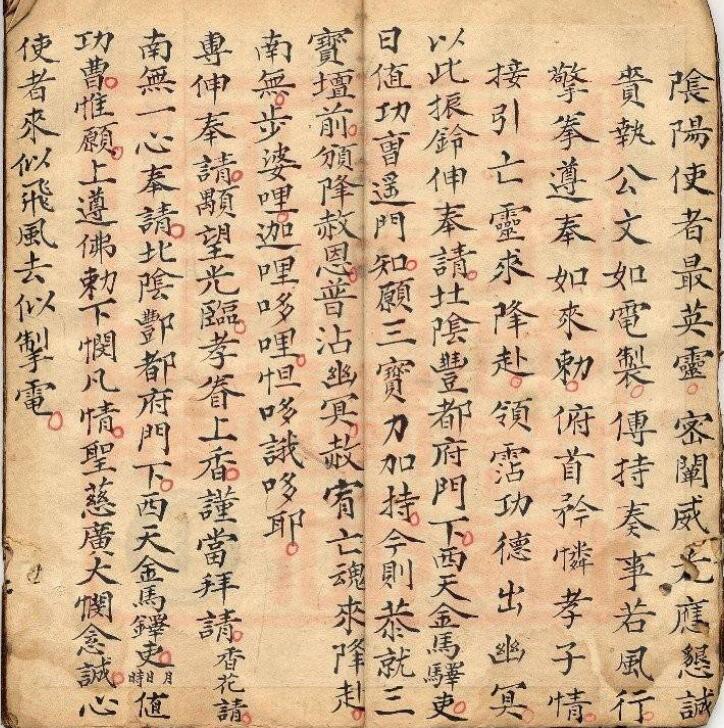 陰陽使者最英靈密闡威光應懇誠
賫執公文如電製傳持奏事若風行
擎拳遵奉如來勅俯首矜憐孝子情
接引亡靈來降赴領霑功德出幽冥
以此振鈴伸奉請北陰豐都府門下西天金馬驛吏
日值功曹遥門知願三寶力加持今則恭就三
寶壇前頒降赦恩普沾幽冥赦宥亡魂來降赴
南無步婆哩迦哩哆哩怛哆誐哆耶
專伸奉請顒望光臨孝眷上香謹當拜請香花請
南無一心奉請北陰酆都府門下西天金馬鐸吏月日時值
功曹惟願上遵佛勅下憫凡情聖慈廣大憫念誠心
使者來似飛風去似掣電